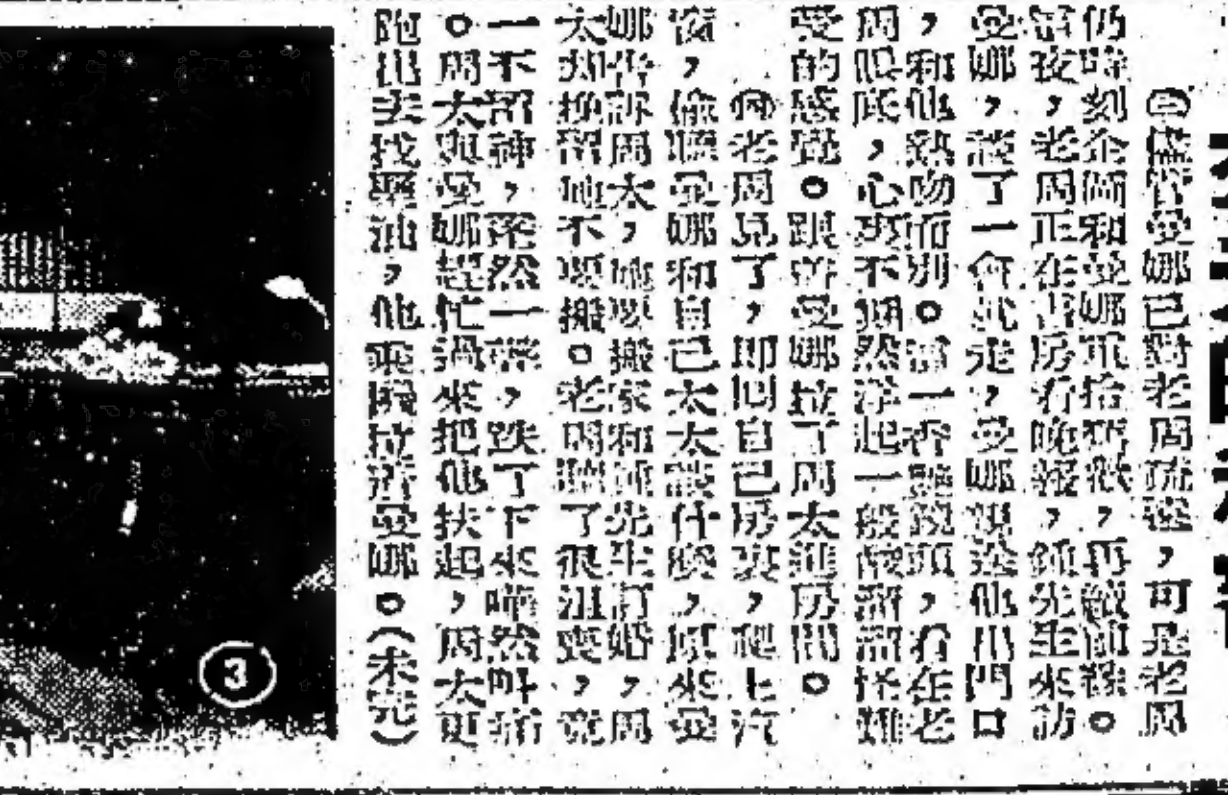 ㊂儘管曼娜已對老周疏遠,可是老周
仍時刻企圖和曼娜重拾舊歡,再續前緣。
當夜,老周正在書房看晚報,鍾先生來訪
曼娜,談了一會就走,曼娜親送他出門口
,和他熱吻而別。這一香艷鏡頭,看在老
周眼底,心裏不期然浮起一般酸溜溜怪難
受的感覺。跟着曼娜拉了周太進房間。
㊃老周見了,即回自己房裏,爬上汽
窗,偷聽曼娜和自己太太談什麼,原來曼
娜告訴周太,她要搬家和鍾先生訂婚,周
太却挽留她不要搬。老周聽了很沮喪,竟
一不留神,突然一滑,跌了下來,嘩然叫痛
。周太與曼娜趕忙過來,把他扶起,周太更
跑出去找藥油,他乘機拉着曼娜。(未完)
3